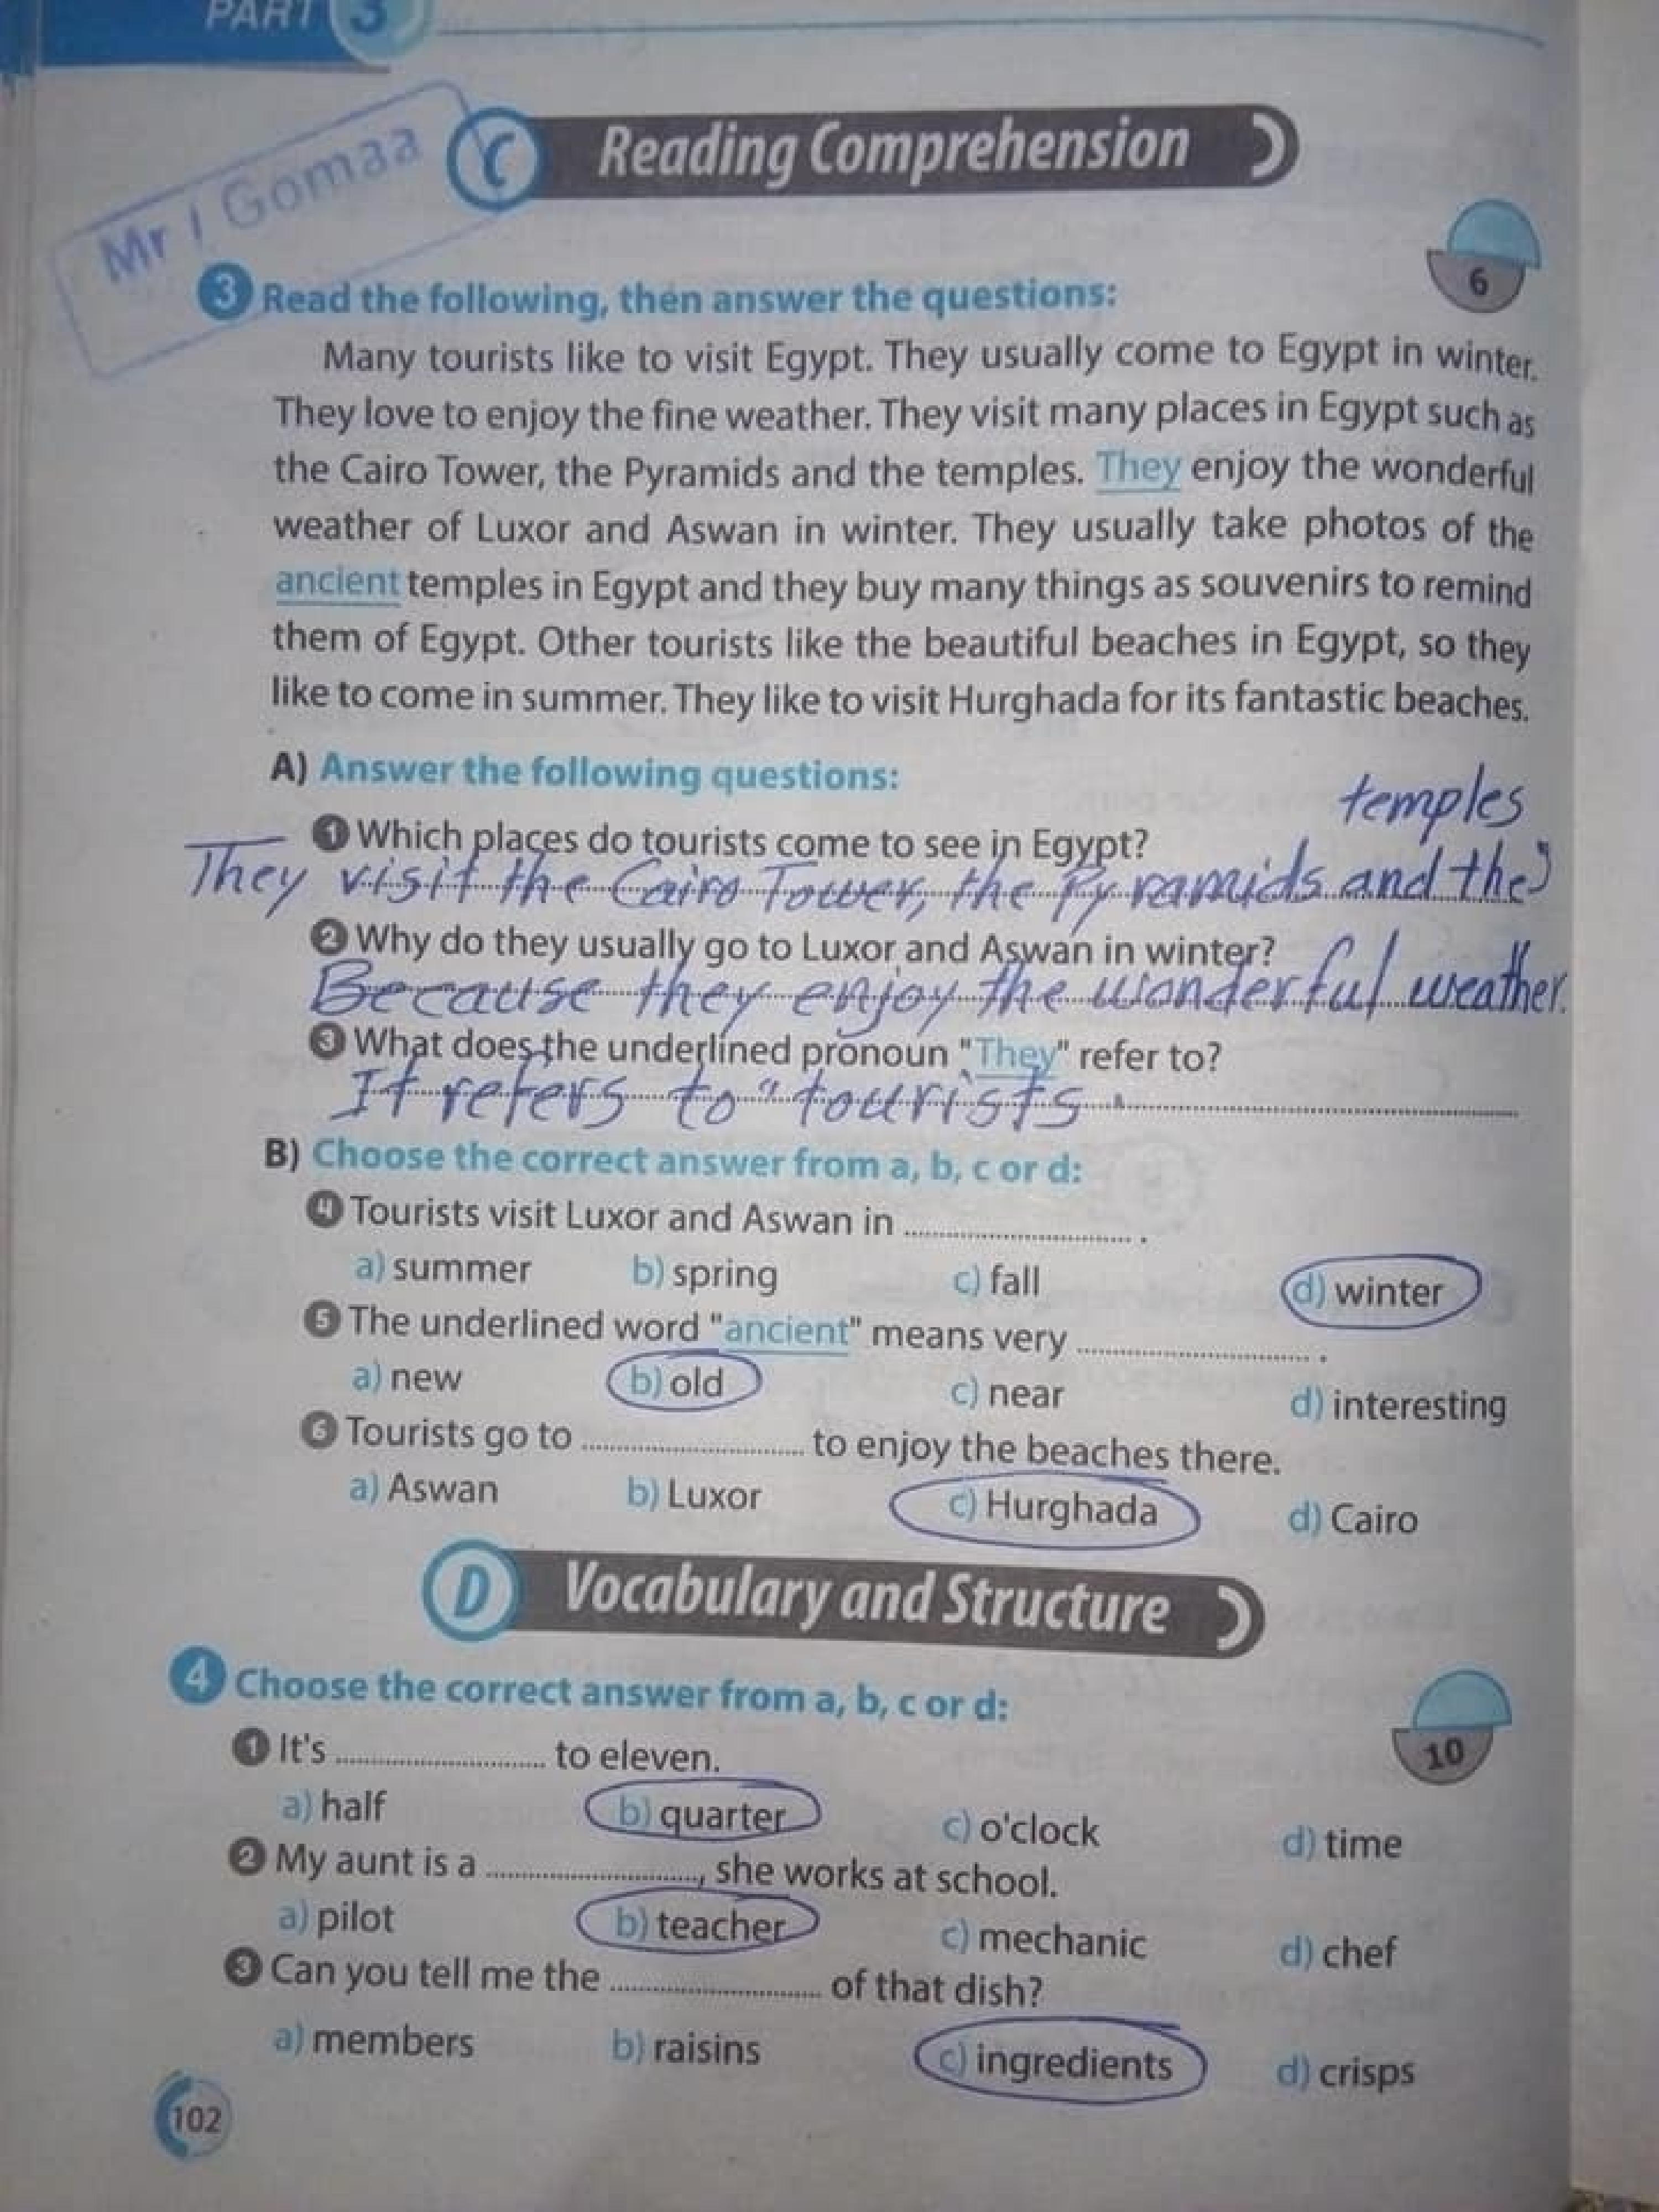 PART 3
Mr / Gomaa
C Reading Comprehension
6
3 Read the following, then answer the questions:
Many tourists like to visit Egypt. They usually come to Egypt in winter.
They love to enjoy the fine weather. They visit many places in Egypt such as
the Cairo Tower, the Pyramids and the temples. They enjoy the wonderful
weather of Luxor and Aswan in winter. They usually take photos of the
ancient temples in Egypt and they buy many things as souvenirs to remind
them of Egypt. Other tourists like the beautiful beaches in Egypt, so they
like to come in summer. They like to visit Hurghada for its fantastic beaches.
A) Answer the following questions:
1 Which places do tourists come to see in Egypt?
They visit the Cairo Tower, the Pyramids and the temples
2 Why do they usually go to Luxor and Aswan in winter?
Because they enjoy the wonderful weather.
3 What does the underlined pronoun "They" refer to?
It refers to "tourists".
B) Choose the correct answer from a, b, c or d:
4 Tourists visit Luxor and Aswan in .................... .
a) summer b) spring c) fall d) winter
5 The underlined word "ancient" means very .................... .
a) new b) old c) near d) interesting
6 Tourists go to .................... to enjoy the beaches there.
a) Aswan b) Luxor c) Hurghada d) Cairo
D Vocabulary and Structure
4 Choose the correct answer from a, b, c or d:
10
1 It's .................... to eleven.
a) half b) quarter c) o'clock d) time
2 My aunt is a ...................., she works at school.
a) pilot b) teacher c) mechanic d) chef
3 Can you tell me the .................... of that dish?
a) members b) raisins c) ingredients d) crisps
102